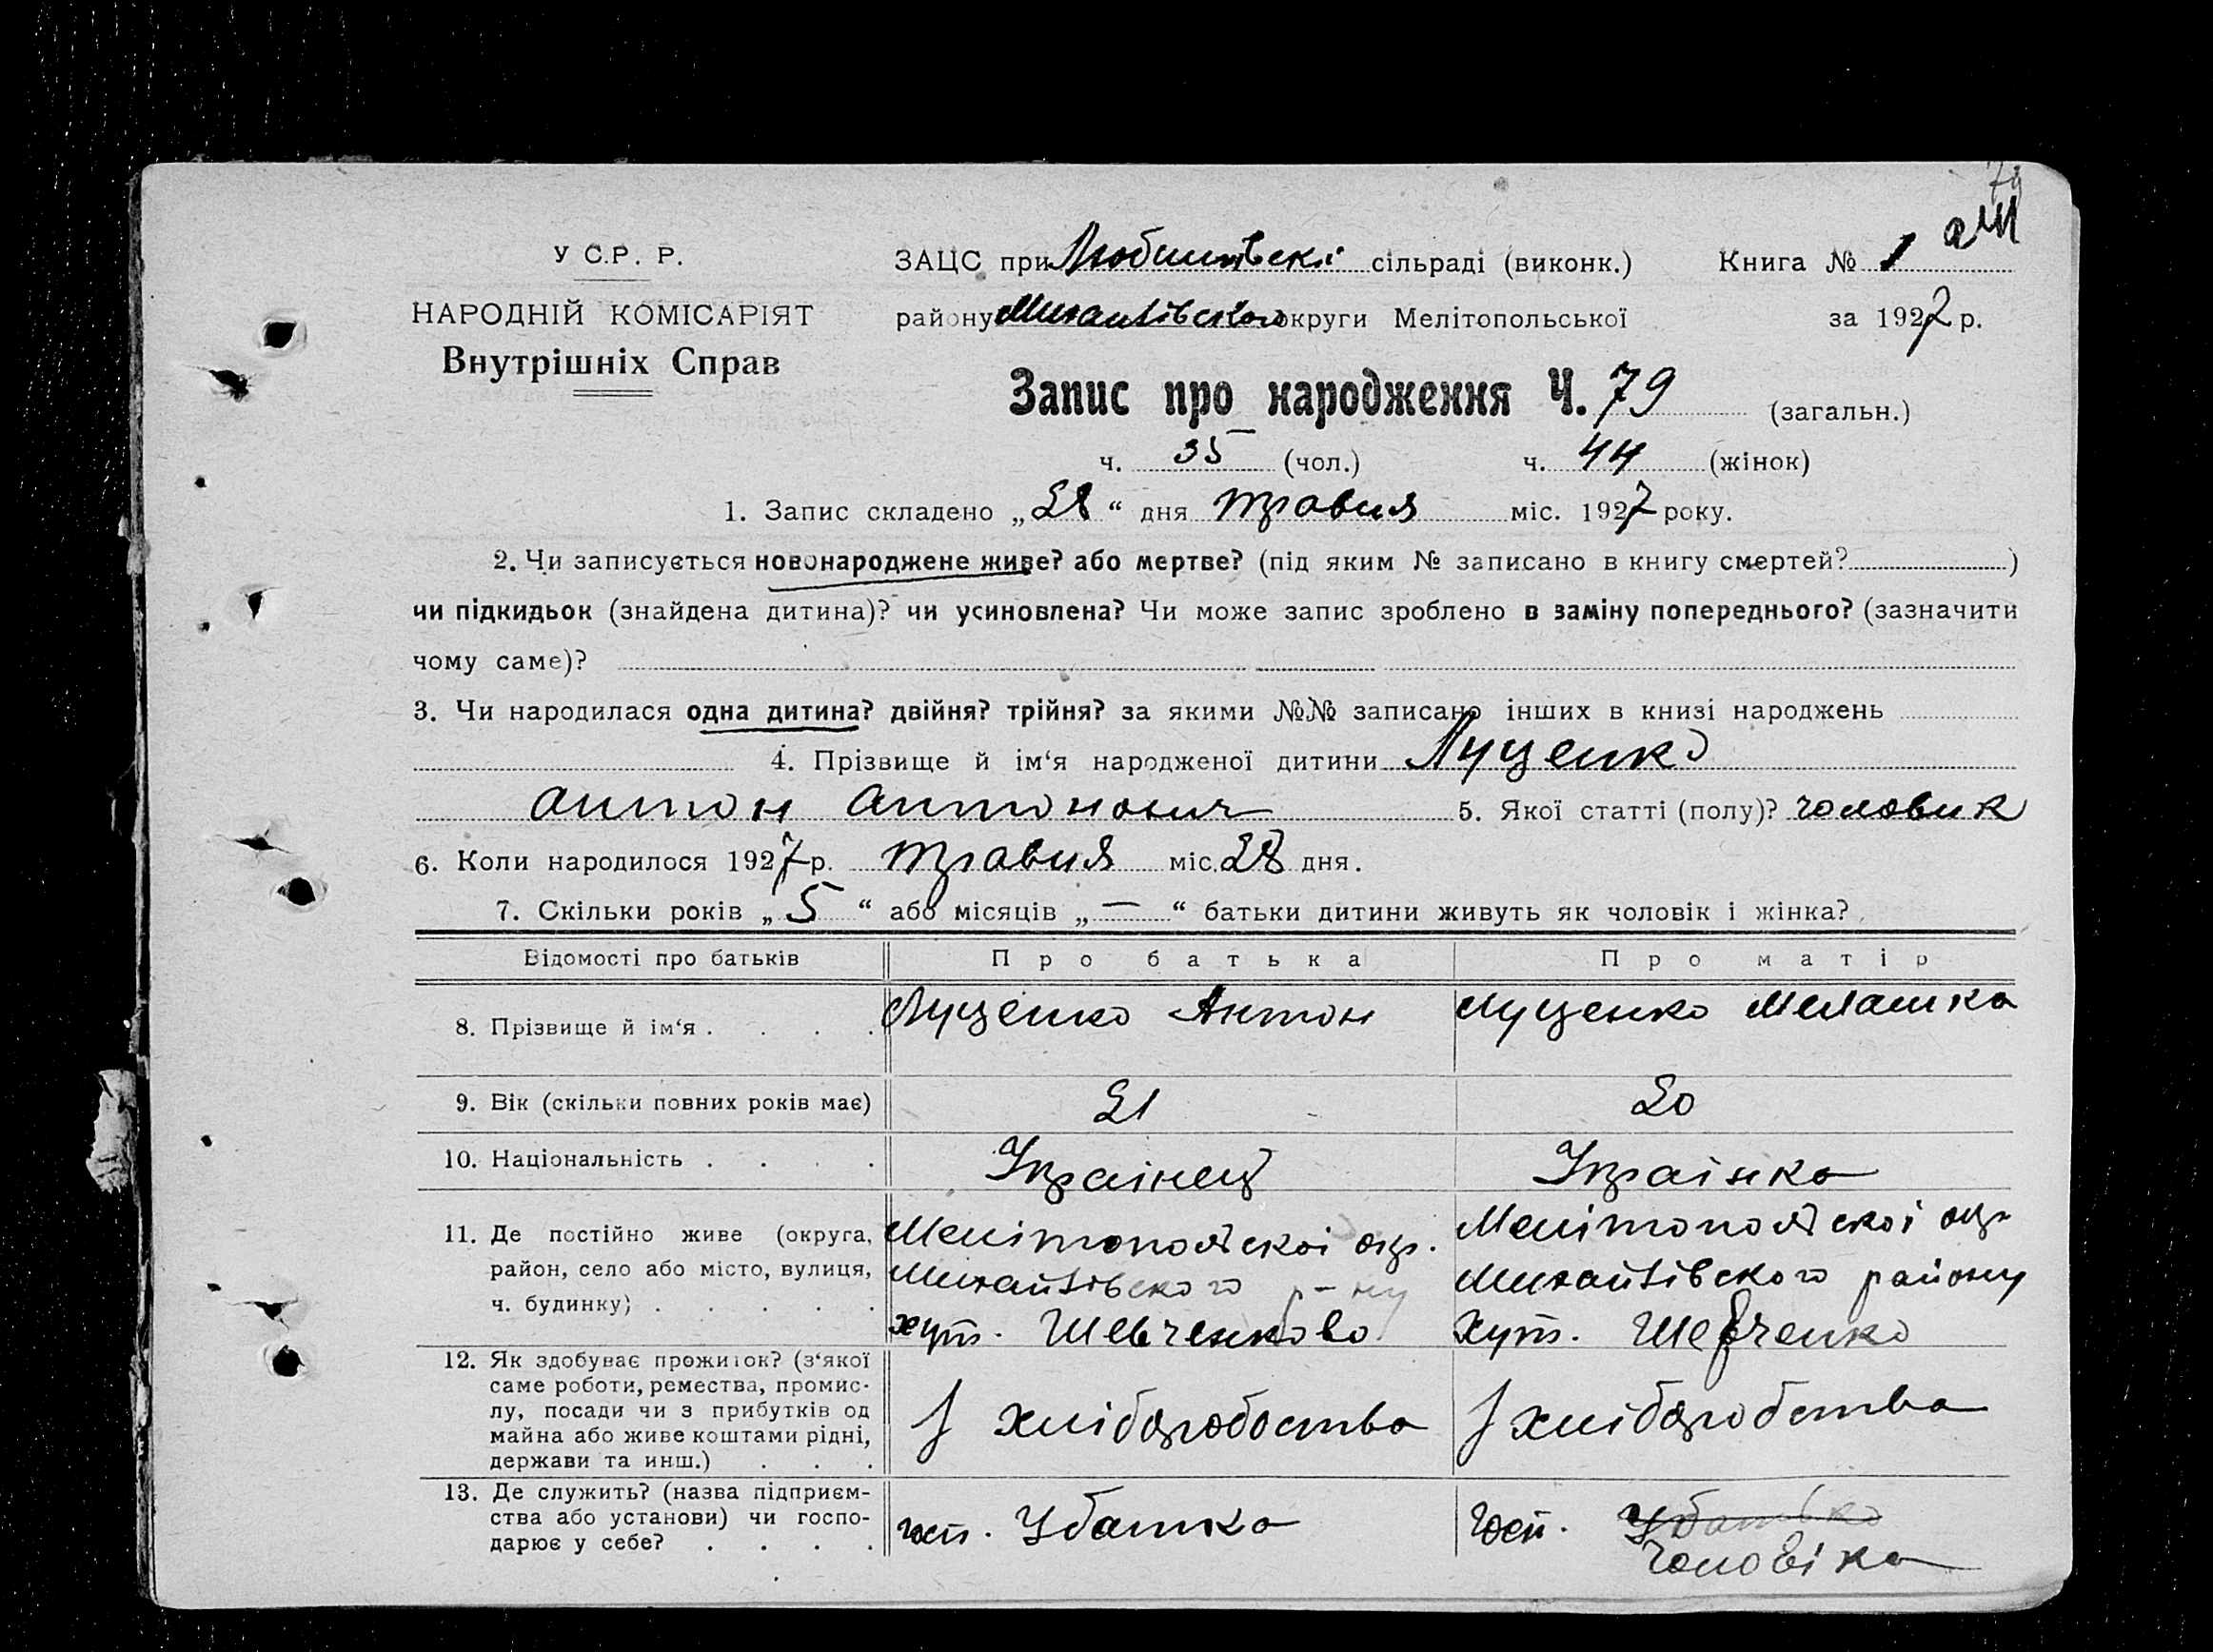 79
У С.Р. Р.
ЗАЦС при Любимівскі сільраді (виконк.) Книга № 1
НАРОДНІЙ КОМІСАРІЯТ
району Михайлівского округи Мелітопольської за 1927 р.
Внутрішніх Справ
Запис про народження Ч. 79 (загальн.)
ч. 35 (чол.) ч. 44 (жінок)
1. Запис складено „28“ дня травня міс. 1927 року.
2. Чи записується новонароджене живе? або мертве? (під яким № записано в книгу смертей? )
чи підкидьок (знайдена дитина)? чи усиновлена? Чи може запис зроблено в заміну попереднього? (зазначити
чому саме)?
3. Чи народилася одна дитина? двійня? трійня? за якими №№ записано інших в книзі народжень
4. Прізвище й ім‘я народженої дитини Луценко
Антон Антонович 5. Якої статті (полу)? чоловик
6. Коли народилося 1927 р. травня міс. 28 дня.
7. Скільки років „5“ або місяців „—“ батьки дитини живуть як чоловік і жінка?
Відомості про батьків Про батька Про матір
8. Прізвище й ім‘я . . . . Луценко Антон Луценко Мелашка
9. Вік (скільки повних років має) 21 20
10. Національність . . . . Українец Українка
11. Де постійно живе (округа, Мелітопольскої окр. Мелітопольскої окр
район, село або місто, вулиця, Михайлівского р-ну Михайлівского району
ч. будинку) . . . . . хут. Шевченково хут. Шевченко
12. Як здобуває прожиток? (з‘якої
саме роботи, ремества, промис-
лу, посади чи з прибутків од З хліборобоства З хліборобства
майна або живе коштами рідні,
держави та инш.) . . .
13. Де служить? (назва підприєм-
ства або установи) чи госпо- госп. У батька госп. У батька
дарює у себе? . . . . чоловіка